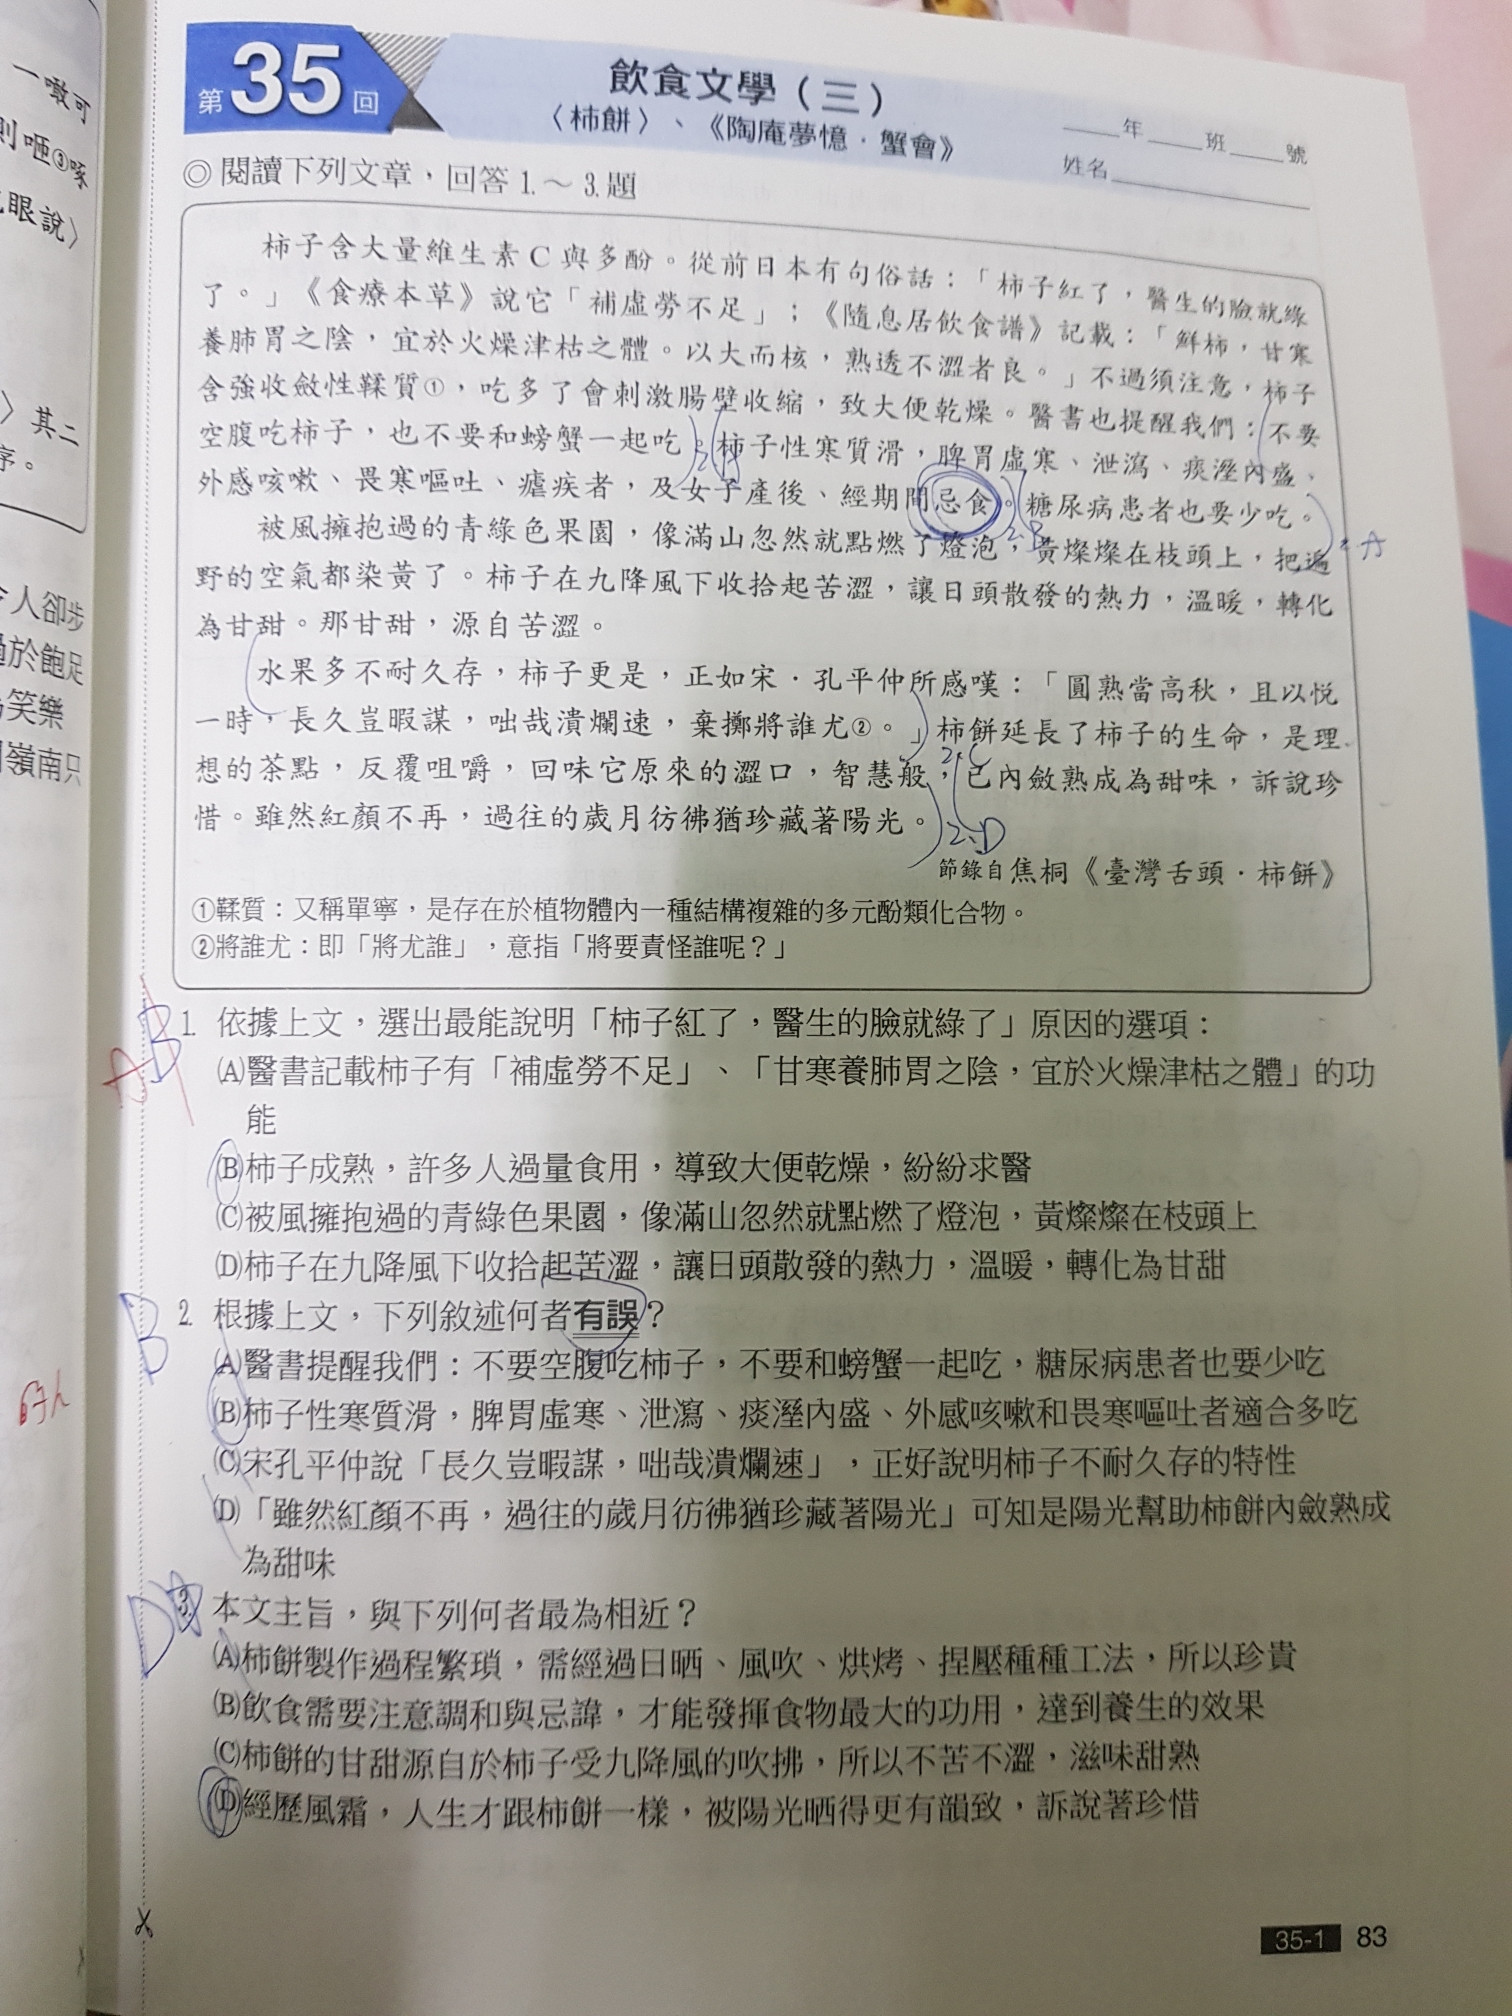 一噉可
則咂③啄
眼說〉
〉其二
序。
令人卻步
過於飽足
為笑樂
嶺南只
第35回
飲食文學（三）
〈柿餅〉、《陶庵夢憶．蟹會》
年 班 號
姓名
◎閱讀下列文章，回答1.～3.題
柿子含大量維生素C與多酚。從前日本有句俗話：「柿子紅了，醫生的臉就綠
了。」《食療本草》說它「補虛勞不足」；《隨息居飲食譜》記載：「鮮柿，甘寒
養肺胃之陰，宜於火燥津枯之體。以大而核，熟透不澀者良。」不過須注意，柿子
含強收斂性鞣質①，吃多了會刺激腸壁收縮，致大便乾燥。醫書也提醒我們：不要
空腹吃柿子，也不要和螃蟹一起吃。柿子性寒質滑，脾胃虛寒、泄瀉、痰溼內盛、
外感咳嗽、畏寒嘔吐、瘧疾者，及女子產後、經期間忌食。糖尿病患者也要少吃。
被風擁抱過的青綠色果園，像滿山忽然就點燃了燈泡，黃燦燦在枝頭上，把遍
野的空氣都染黃了。柿子在九降風下收拾起苦澀，讓日頭散發的熱力，溫暖，轉化
為甘甜。那甘甜，源自苦澀。
水果多不耐久存，柿子更是，正如宋．孔平仲所感嘆：「圓熟當高秋，且以悅
一時，長久豈暇謀，咄哉潰爛速，棄擲將誰尤②。」柿餅延長了柿子的生命，是理
想的茶點，反覆咀嚼，回味它原來的澀口，智慧般，已內斂熟成為甜味，訴說珍
惜。雖然紅顏不再，過往的歲月彷彿猶珍藏著陽光。
2.A
2.B
2.A
2.C
2.D
節錄自焦桐《臺灣舌頭．柿餅》
①鞣質：又稱單寧，是存在於植物體內一種結構複雜的多元酚類化合物。
②將誰尤：即「將尤誰」，意指「將要責怪誰呢？」
A B 1. 依據上文，選出最能說明「柿子紅了，醫生的臉就綠了」原因的選項：
(A)醫書記載柿子有「補虛勞不足」、「甘寒養肺胃之陰，宜於火燥津枯之體」的功
能
(B)柿子成熟，許多人過量食用，導致大便乾燥，紛紛求醫
(C)被風擁抱過的青綠色果園，像滿山忽然就點燃了燈泡，黃燦燦在枝頭上
(D)柿子在九降風下收拾起苦澀，讓日頭散發的熱力，溫暖，轉化為甘甜
B 2. 根據上文，下列敘述何者有誤？
(A)醫書提醒我們：不要空腹吃柿子，不要和螃蟹一起吃，糖尿病患者也要少吃
(B)柿子性寒質滑，脾胃虛寒、泄瀉、痰溼內盛、外感咳嗽和畏寒嘔吐者適合多吃
(C)宋孔平仲說「長久豈暇謀，咄哉潰爛速」，正好說明柿子不耐久存的特性
(D)「雖然紅顏不再，過往的歲月彷彿猶珍藏著陽光」可知是陽光幫助柿餅內斂熟成
為甜味
D 3. 本文主旨，與下列何者最為相近？
(A)柿餅製作過程繁瑣，需經過日晒、風吹、烘烤、捏壓種種工法，所以珍貴
(B)飲食需要注意調和與忌諱，才能發揮食物最大的功用，達到養生的效果
(C)柿餅的甘甜源自於柿子受九降風的吹拂，所以不苦不澀，滋味甜熟
(D)經歷風霜，人生才跟柿餅一樣，被陽光晒得更有韻致，訴說著珍惜
35-1 83